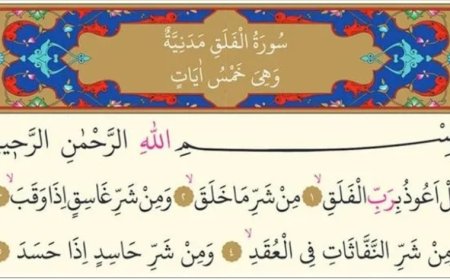 سُورَةُ الْفَلَقِ مَدَنِيَّةٌ
وَهِىَ خَمْسُ اٰيَاتٍ
بِسْمِ اللهِ الرَّحْمٰنِ الرَّحٖيمِ
قُلْ اَعُوذُ بِرَبِّ الْفَلَقِۙ ﴿١﴾ مِنْ شَرِّ مَا خَلَقَۙ ﴿٢﴾ وَمِنْ شَرِّ غَاسِقٍ اِذَا وَقَبَۙ
وَمِنْ شَرِّ النَّفَّاثَاتِ فِى الْعُقَدِۙ ﴿٤﴾ وَمِنْ شَرِّ حَاسِدٍ اِذَا حَسَدَ